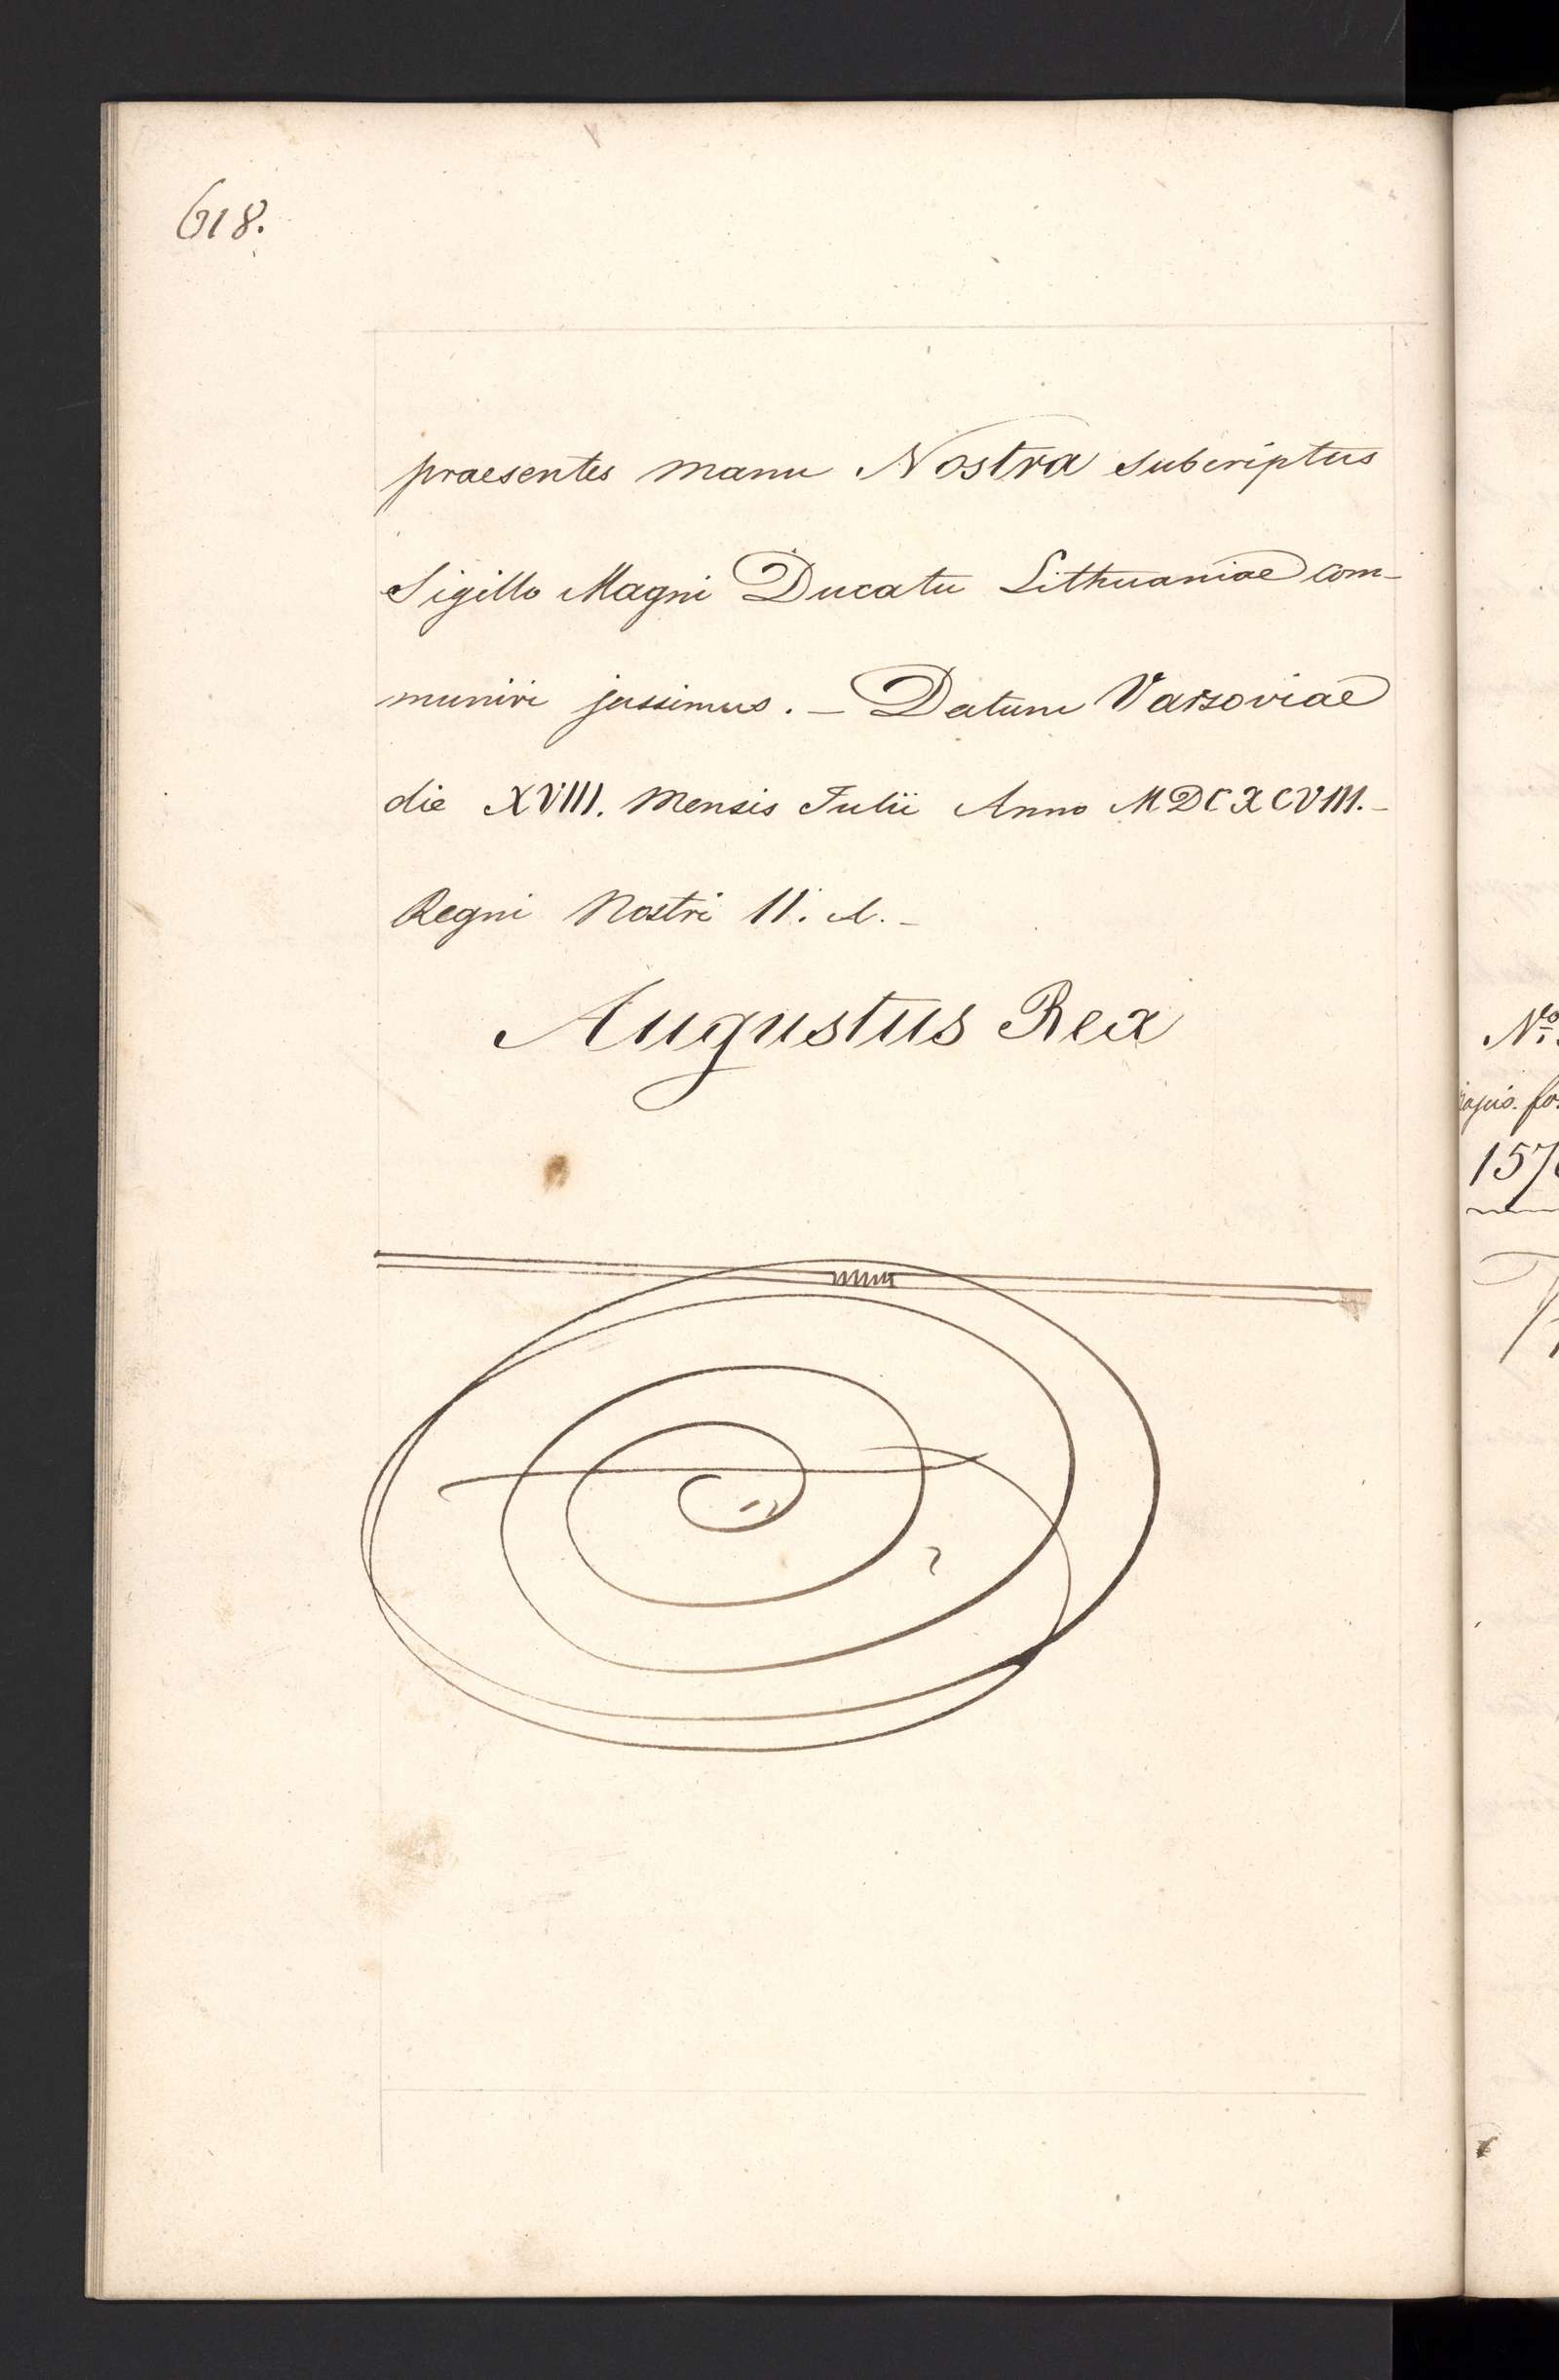 618.
praesentes manu Nostra subcriptus
Sigillo Magni Ducatu Lithuaniae com-
muniri jussimus. – Datum Varsoviae
die XVIII. Mensis Iulii Anno MDCXCVIII. –
Regni Nostri II. A. –
Augustus Rex
No
157